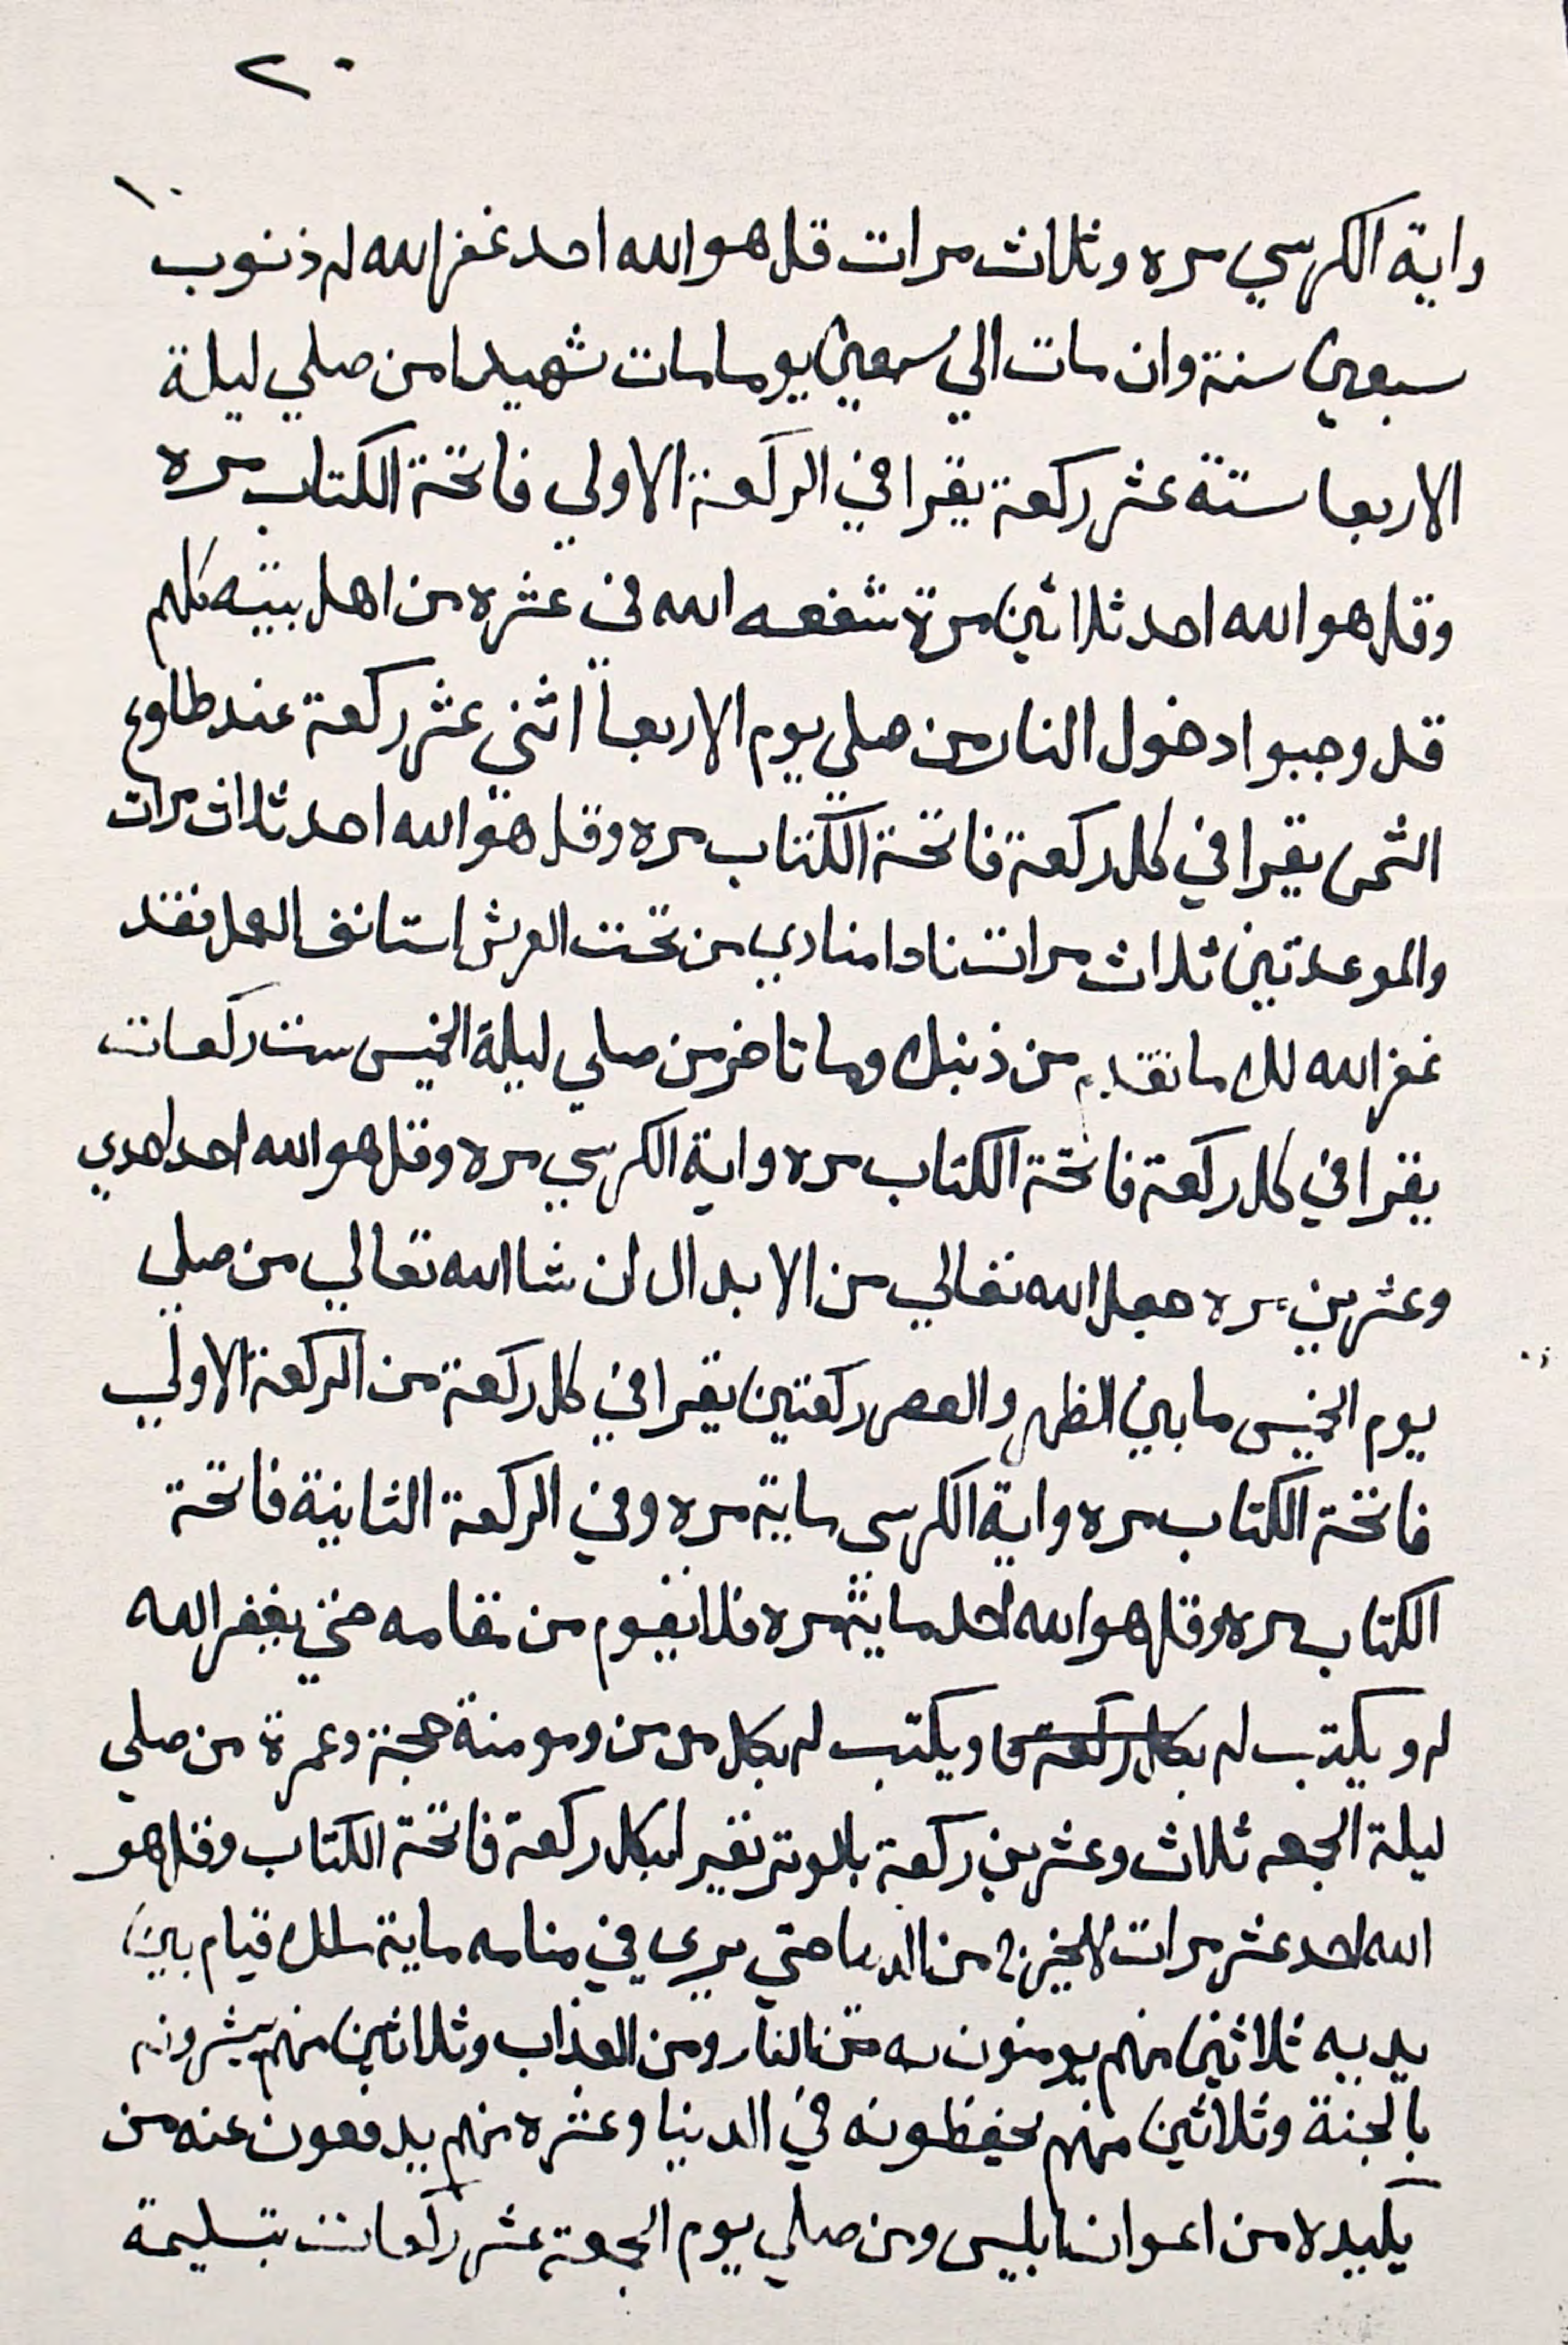 ٢٠
١٠
واية الكرسي مره وثلاث مرات قل هو الله احد غفر الله له ذنوب
سبعين سنة وان مات الي سبعين يوما مات شهيدا من صلي ليلة
الاربعا ستة عشر ركعة يقرا في الركعة الاولي فاتحة الكتاب مره
وقل هو الله احد ثلاثين مرة شفعه الله في عشره من اهل بيته كلهم
قد وجبوا دخول النار من صلي يوم الاربعا اثني عشر ركعة عند طلوع
الشمس يقرا في كل ركعة فاتحة الكتاب مره وقل هو الله احد ثلاث مرات
والموعدتين ثلاث مرات نادا منادي من تحت العرش استانف العمل فقد
غفر الله لك ما تقدم من ذنبك وما تاخر من صلي ليلة الخميس ست ركعات
يقرا في كل ركعة فاتحة الكتاب مره واية الكرسي مره وقل هو الله احد احدي
وعشرين مره جعله الله تعالي من الابدال ان شا الله تعالي من صلي
يوم الخميس ما بين الظهر والعصر ركعتين يقرا في كل ركعة من الركعة الاولي
فاتحة الكتاب مره واية الكرسي ماية مره وفي الركعة الثانية فاتحة
الكتاب مره وقل هو الله احد ماية مره فلا يقوم من مقامه حتي يغفر الله
له ويكتب له بكل ركعة ويكتب له بكل مومن ومومنة حجة وعمرة من صلي
ليلة الجمعه ثلاث وعشرين ركعة بالوتر يقير ا بكل ركعة فاتحة الكتاب وقل هو
الله احد عشر مرات لا يخرج من الدنيا حتي يري في منامه ماية ملك قيام بين
يديه ثلاثين منهم يومنونه من النار ومن العذاب وثلاثين منهم يبشرونه
بالجنة وثلاثين منهم يحفظونه في الدنيا وعشره منهم يدفعون عنه من
يكيده من اعوان ابليس ومن صلي يوم الجمعة عشر ركعات بتسليمة